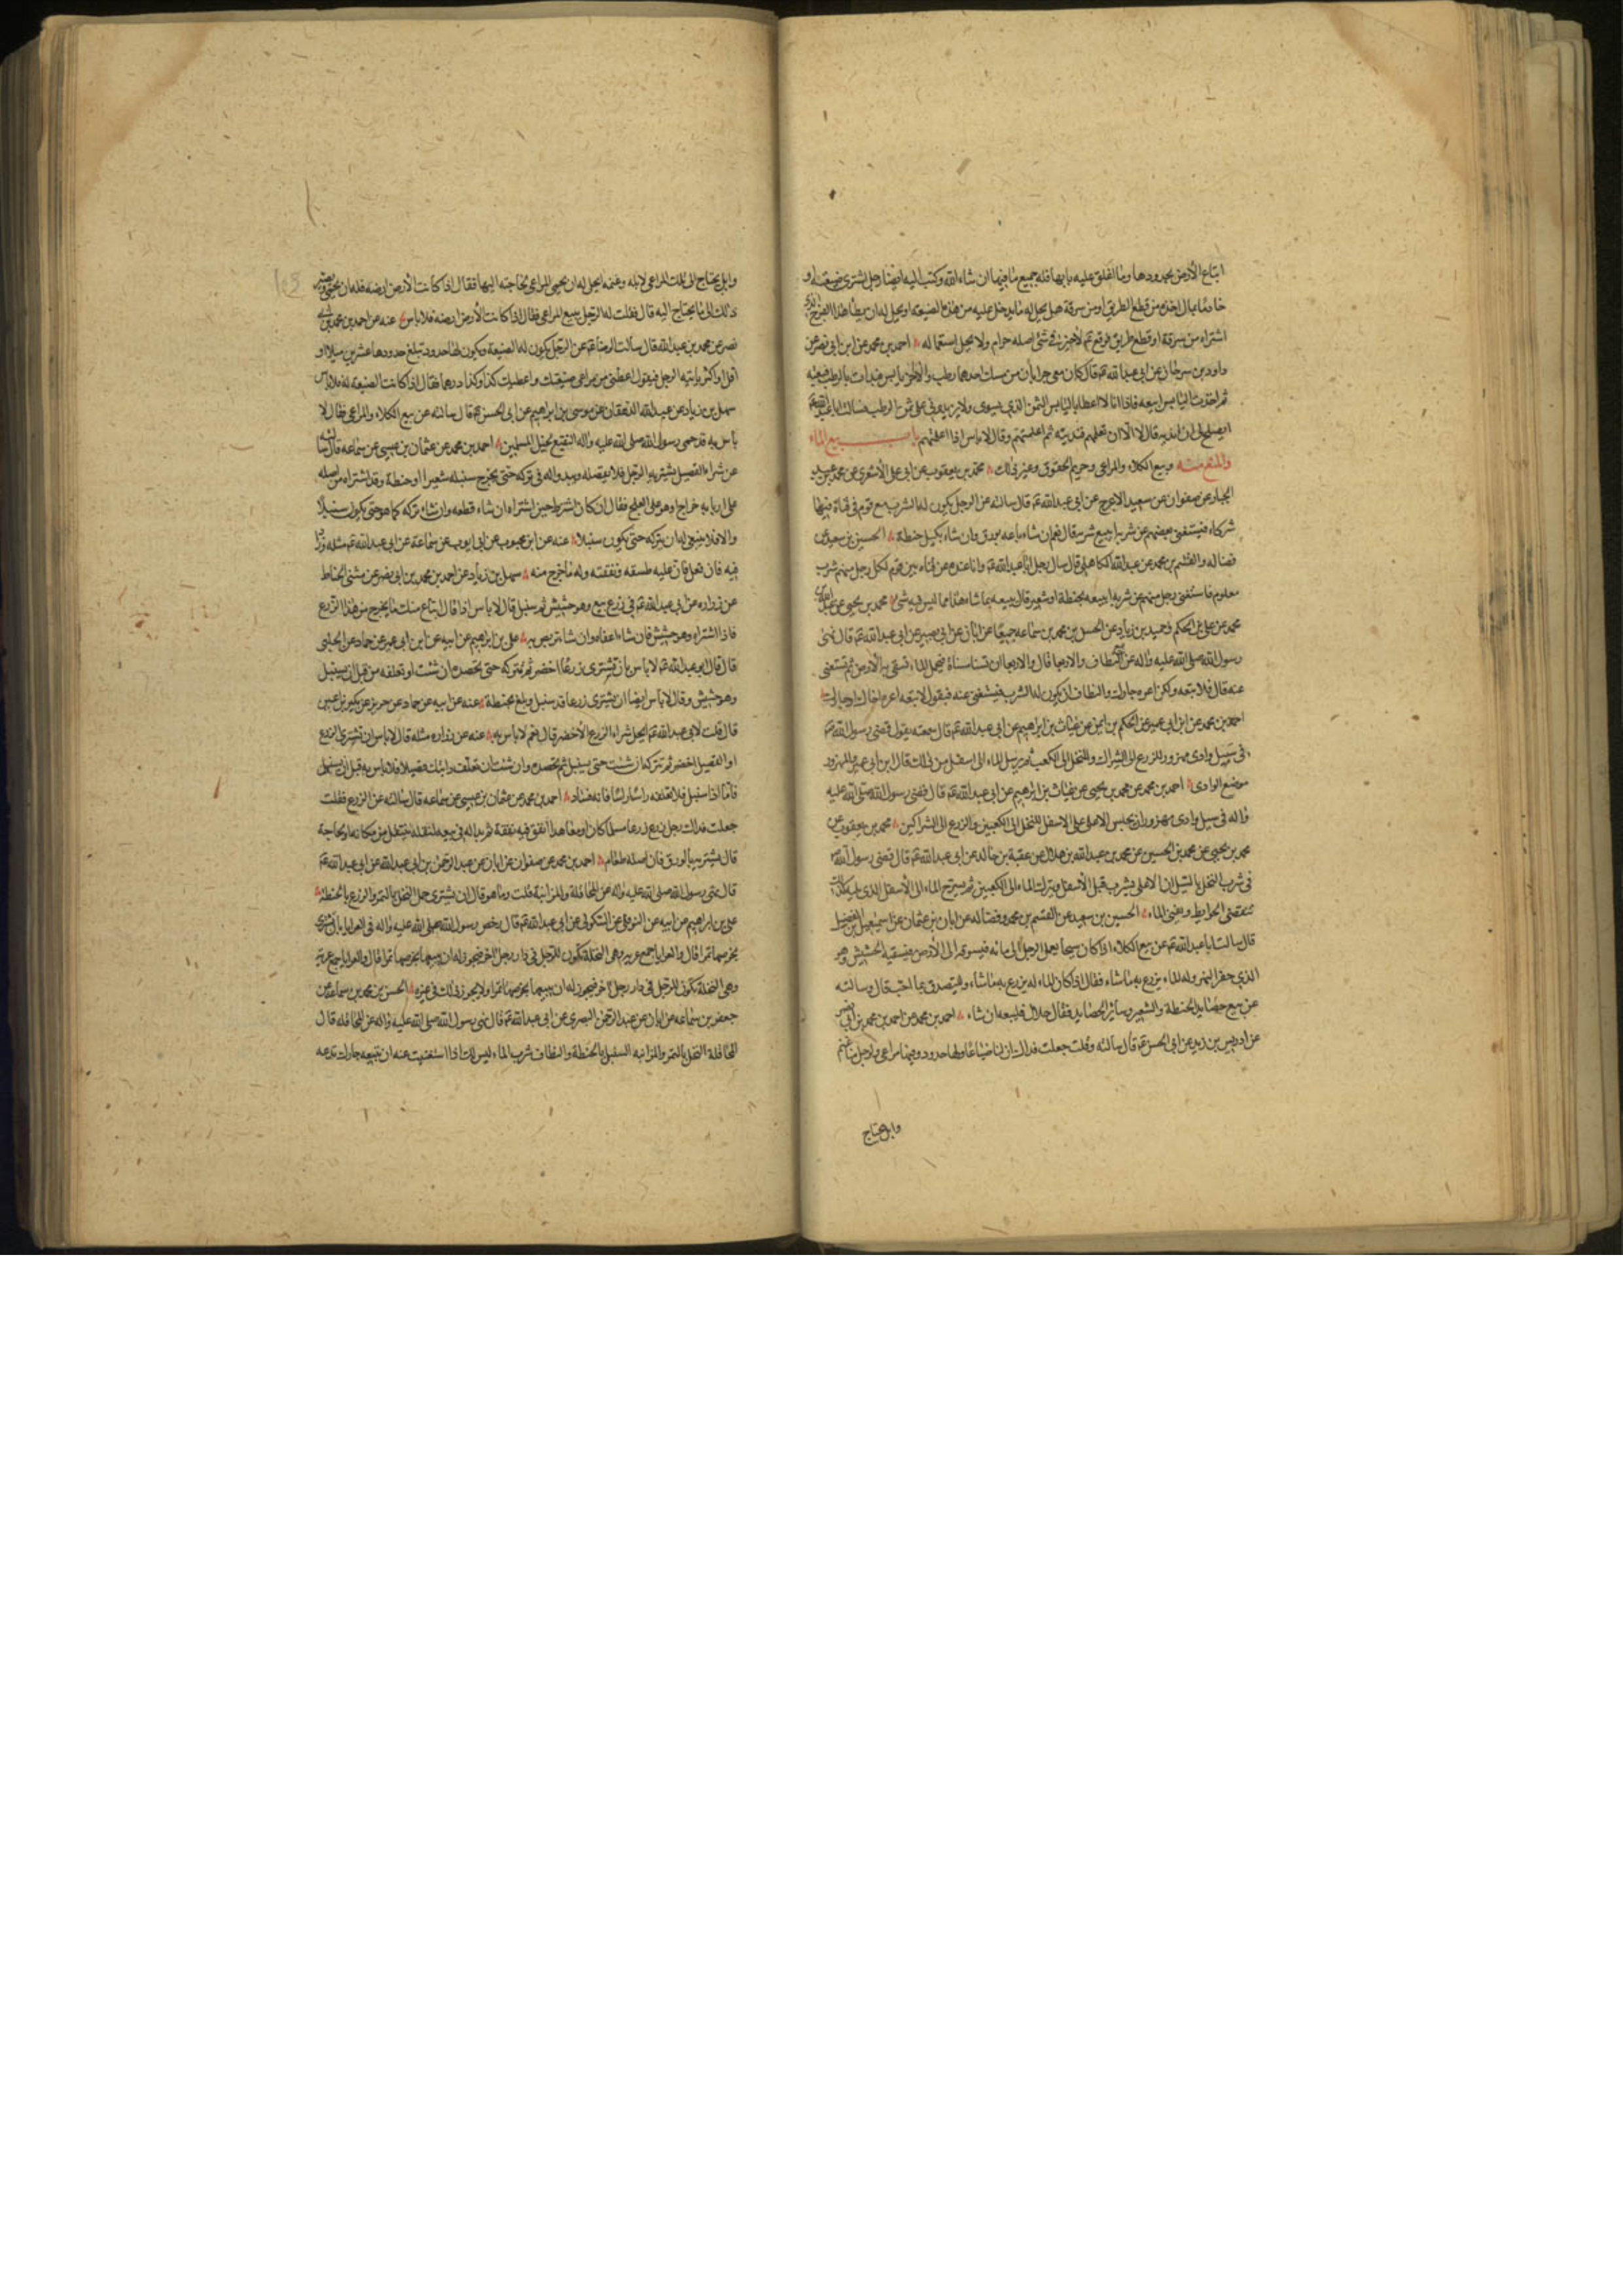 ابتاع الأرض بحدودها وما اغلق عليه بابها فله جميع ما فيها ان شاء الله وكتب اليه ايضا رجل اشترى ضيعة او
خادما بمال اخذه من قطع الطريق او من سرقة هل يحل له ما يدخل عليه من هذه الضيعة او يحل له ان يطأ هذا الفرج الذي
اشتراه من سرقة او قطع طريق فوقع ع لا خير في شئ اصله حرام ولا يحل استعماله احمد بن محمد عن ابن ابي نصر عن
داود بن سرحان عن ابي عبد الله ع قال كان معي جرابان من مسك احدهما رطب والاخر يابس فبدات بالرطب فبعته
ثم اخذت اليابس ابيعه فاذا انا لا اعطى باليابس الثمن الذي يسوى ولا يزيدوني على ثمن الرطب فسالت ابا عبد الله ع
ايصلح لي ان اندّيه قال لا الا ان تعلمهم فندّيته ثم اعلمتهم وقال لا باس اذا اعلمتهم باب بيع الماء
والمنع منه وبيع الكلاء والمراعي وحريم الحقوق وغير ذلك محمد بن يعقوب عن ابي علي الأشعري عن محمد بن عبد
الجبار عن صفوان عن سعيد الاعرج عن ابي عبد الله ع قال سالته عن الرجل يكون له الشرب مع قوم في قناة فيها
شركاء فيستغني بعضهم عن شربه ايبيع شربه قال نعم ان شاء باعه بورق وان شاء بكيل حنطة الحسين بن سعيد عن
فضالة والقسم بن محمد عن عبد الله الكاهلي قال سال رجل ابا عبد الله ع وانا عنده عن قناة بين قوم لكل رجل منهم شرب
معلوم فاستغنى رجل منهم عن شربه ايبيعه بحنطة او شعير قال يبيعه بما شاء هذا مما ليس فيه شئ محمد بن يحيى عن عبد الله بن
محمد عن علي بن الحكم وحميد بن زياد عن الحسن بن محمد بن سماعة جميعا عن ابان عن ابي بصير عن ابي عبد الله ع قال نهى
رسول الله صلى الله عليه واله عن النطاف والاربعا قال والاربعا ان تسنا مسناة فيحمل الماء تسقي به الأرض ثم تستغني
عنه قال فلا تبعه ولكن اعره جارك والنطاف ان يكون له الشرب فيستغني عنه فيقول لا تبعه اعره اخاك او جارك
احمد بن محمد عن ابن ابي عمير عن الحكم بن ايمن عن غياث بن ابراهيم عن ابي عبد الله ع قال سمعته يقول قضى رسول الله ص
في سيل وادي مهزور للزرع الى الشراك وللنخل الى الكعب ثم يرسل الماء الى اسفل من ذلك قال ابن ابي عمير المهزور
موضع الوادي احمد بن محمد عن محمد بن يحيى عن غياث بن ابراهيم عن ابي عبد الله ع قال قضى رسول الله صلى الله عليه
واله في سيل وادي مهزور ان يحبس الاعلى على الاسفل للنخل الى الكعبين والزرع الى الشراكين محمد بن يعقوب عن
محمد بن يحيى عن محمد بن الحسين عن محمد بن عبد الله بن هلال عن عقبة بن خالد عن ابي عبد الله ع قال قضى رسول الله ص
في شرب النخل بالسيل ان الاعلى يشرب قبل الأسفل ويترك الماء الى الكعبين ثم يسرح الماء الى الأسفل الذي يليه كذلك
تنقضي الحوايط ويفنى الماء الحسين بن سعيد عن القسم بن محمد وفضالة عن ابان بن عثمان عن اسمعيل بن الفضل
قال سالت ابا عبد الله ع عن بيع الكلاء اذا كان سيحا يعمد الرجل الى مائه فيسوقه الى الأرض فيسقيه الحشيش وهو
الذي حفر النهر وله الماء يزرع به ما شاء فقال اذا كان الماء له يزرع به ما شاء وليتصدق بما احب قال وسالته
عن بيع حصايد الحنطة والشعير وساير الحصايد فقال حلال فليبعه ان شاء احمد بن محمد عن احمد بن محمد بن ابي نصر
عن ادريس بن زيد عن ابي الحسن ع قال سالته وقلت جعلت فداك ان لنا ضياعا ولها حدود وفيها مراعي ولرجل منا غنم
وابل يحتاج
وابل يحتاج الى تلك المراعي لابله وغنمه ايحل له ان يحمي المراعي لحاجته اليها فقال اذا كانت الأرض ارضه فله ان يحمي ويصير
ذلك الى ما يحتاج اليه قال فقلت له الرجل يبيع المراعي فقال اذا كانت الأرض ارضه فلا باس عنه عن احمد بن محمد بن ابي
نصر عن محمد بن عبد الله قال سالت الرضا ع عن الرجل يكون له الضيعة ويكون لها حدود تبلغ حدودها عشرين ميلا او
اقل او اكثر ياتيه الرجل فيقول اعطني من مراعي ضيعتك واعطيك كذا وكذا درهما فقال اذا كانت الضيعة له فلا باس
سهل بن زياد عن عبد الله الدهقان عن موسى بن ابراهيم عن ابي الحسن ع قال سالته عن بيع الكلاء والمراعي فقال لا
بأس به قد حمى رسول الله صلى الله عليه واله النقيع لخيل المسلمين احمد بن محمد عن عثمان بن عيسى عن سماعة قال سالته
عن شراء القصيل يشتريه الرجل فلا يقصله ويبدو له في تركه حتى يخرج سنبله شعيرا او حنطة وقد اشتراه من اصله
على اربابه خراج او هو على العلج فقال ان كان اشترط حين اشتراه ان شاء قطعه وان شاء تركه كما هو حتى يكون سنبلا
والا فلا ينبغي له ان يتركه حتى يكون سنبلا عنه عن ابن محبوب عن ابي ايوب عن سماعة عن ابي عبد الله ع مثله وزاد
فيه فان فعل فان عليه طسقه ونفقته وله ما خرج منه سهل بن زياد عن احمد بن محمد بن ابي نصر عن مثنى الحناط
عن زرارة عن ابي عبد الله ع في زرع بيع وهو حشيش ثم سنبل قال لا باس اذا قال ابتاع منك ما يخرج من هذا الزرع
فاذا اشتراه وهو حشيش فان شاء اعفاه وان شاء تربص به علي بن ابراهيم عن ابيه عن ابن ابي عمير عن حماد عن الحلبي
قال قال ابو عبد الله ع لا باس بان تشتري زرعا اخضر ثم تتركه حتى تحصده ان شئت او تعلفه من قبل ان يسنبل
وهو حشيش وقال لا باس ايضا ان تشتري زرعا قد سنبل وبلغ بحنطة عنه عن ابيه عن حماد عن حريز عن بكير بن اعين
قال قلت لابي عبد الله ع ايحل شراء الزرع الأخضر قال نعم لا باس به عنه عن زرارة مثله قال لا باس ان تشتري الزرع
او القصيل اخضر ثم تتركه ان شئت حتى يسنبل ثم تحصده وان شئت ان تعلف دابتك قصيلا فلا باس به قبل ان يسنبل
فاما اذا سنبل فلا تعلفه راسا راسا فانه فساد احمد بن محمد عن عثمان بن عيسى عن سماعة قال سالته عن الزرع فقلت
جعلت فداك رجل زرع زرعا مسلما كان او معاهدا انفق فيه نفقة ثم بدا له في بيعه لنقله ينتقل من مكانه او لحاجة
قال يشتريه بالورق فان اصله طعام احمد بن محمد عن صفوان عن ابان عن عبد الرحمن بن ابي عبد الله عن ابي عبد الله ع
قال نهى رسول الله صلى الله عليه واله عن المحاقلة والمزابنة قلت وما هو قال ان يشتري حمل النخل بالتمر والزرع بالحنطة
علي بن ابراهيم عن ابيه عن النوفلي عن السكوني عن ابي عبد الله ع قال رخص رسول الله صلى الله عليه واله في العرايا بان تشترى
بخرصها تمرا قال والعرايا جمع عرية وهي النخلة تكون للرجل في دار رجل اخر فيجوز له ان يبيعها بخرصها تمرا قال والعرايا جمع عرية
وهي النخلة تكون للرجل في دار رجل اخر فيجوز له ان يبيعها بخرصها تمرا ولا يجوز ذلك في غيره الحسن بن محمد بن سماعة عن
جعفر بن سماعة عن ابان عن عبد الرحمن البصري عن ابي عبد الله ع قال نهى رسول الله صلى الله عليه واله عن المحاقلة قال
المحاقلة النخل بالتمر والمزابنه السنبل بالحنطة والنطاف شرب الماء ليس لك اذا استغنيت عنه ان تبيعه جارك تدعه